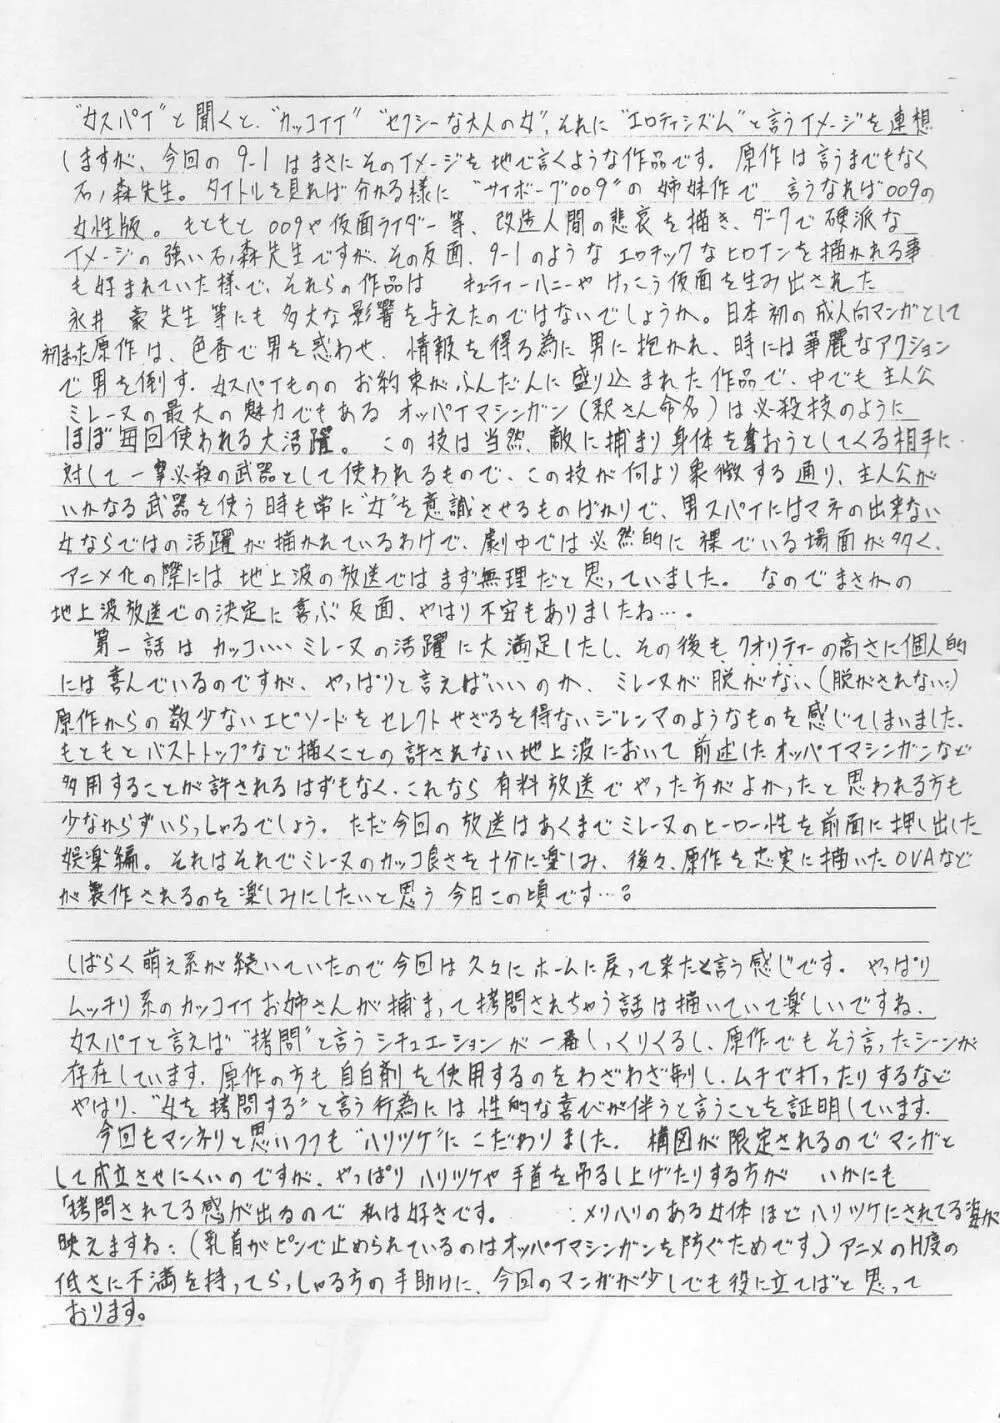 "女スパイ"と聞くと、"カッコイイ" "セクシーな大人の女"、それに"エロティシズム"と言うイメージを連想
しますが、今回の9-1はまさにそのイメージを地で言くような作品です。 原作は言うまでもなく
石ノ森先生。タイトルを見れば分かる様に "サイボーグ009"の姉妹作で 言うなれば009の
女性版。もともと009や仮面ライダー等、改造人間の悲哀を描き、ダークで硬派な
イメージの強い石ノ森先生ですが、その反面、9-1のようなエロチックなヒロインを描かれる事
も好まれていた様で、それらの作品は キューティーハニーやけっこう仮面を生み出された
永井 豪先生等にも多大な影響を与えたのではないでしょうか。日本初の成人向マンガとして
初まった原作は、色香で男を惑わせ、情報を得る為に男に抱かれ、時には華麗なアクション
で男を倒す、女スパイもののお約束がふんだんに盛り込まれた作品で、中でも主人公
ミレーヌの最大の魅力でもあるオッパイマシンガン(釈さん命名)は必殺技のように
ほぼ毎回使われる大活躍。 この技は当然、敵に捕まり身体を奪おうとしてくる相手に
対して一撃必殺の武器として使われるもので、この技が何より象徴する通り、主人公が
いかなる武器を使う時も常に"女"を意識させるものばかりで、男スパイにはマネの出来ない
女ならではの活躍が描かれているわけで、劇中では必然的に裸でいる場面が多く、
アニメ化の際には地上波の放送ではまず無理だと思っていました。 なのでまさかの
地上波放送での決定に喜ぶ反面、やはり不安もありましたね…。
第一話はカッコいいミレーヌの活躍に大満足したし、その後もクオリティーの高さに個人的
には喜んでいるのですが、やっぱりと言えばいいのか、ミレーヌが脱がない(脱がされない)
原作からの数少ないエピソードをセレクトせざるを得ないジレンマのようなものを感じてしまいました。
もともとバストトップなど描くことの許されない地上波において前述したオッパイマシンガンなど
多用することが許されるはずもなく、これなら有料放送でやった方がよかったと思われる方も
少なからずいらっしゃるでしょう。ただ今回の放送はあくまでミレーヌのヒーロー性を前面に押し出した
娯楽編。それはそれでミレーヌのカッコ良さを十分に楽しみ、後々、原作を忠実に描いたOVAなど
が製作されるのを楽しみにしたいと思う今日この頃です…。
しばらく萌え系が続いていたので今回は久々にホームに戻って来たと言う感じです。やっぱり
ムッチリ系のカッコイイお姉さんが捕まって拷問されちゃう話は描いていて楽しいですね。
女スパイと言えば"拷問"と言うシチュエーションが一番しっくりくるし、原作でもそう言ったシーンが
存在しています。原作の方も自白剤を使用するのをわざわざ制し、ムチで打ったりするなど
やはり、"女を拷問する"と言う行為には性的な喜びが伴うと言うことを証明しています。
今回もマンネリと思いつつも"ハリツケ"にこだわりました。構図が限定されるのでマンガと
して成立させにくいのですが、やっぱりハリツケや手首を吊るし上げたりする方が いかにも
「拷問されてる感が出るので私は好きです。 メリハリのある女体ほどハリツケにされてる姿が
映えますね。(乳首がピンで止められているのはオッパイマシンガンを防ぐためです。)アニメのH度の
低さに不満を持ってらっしゃる方の手助けに、今回のマンガが少しでも役に立てばと思って
おります。